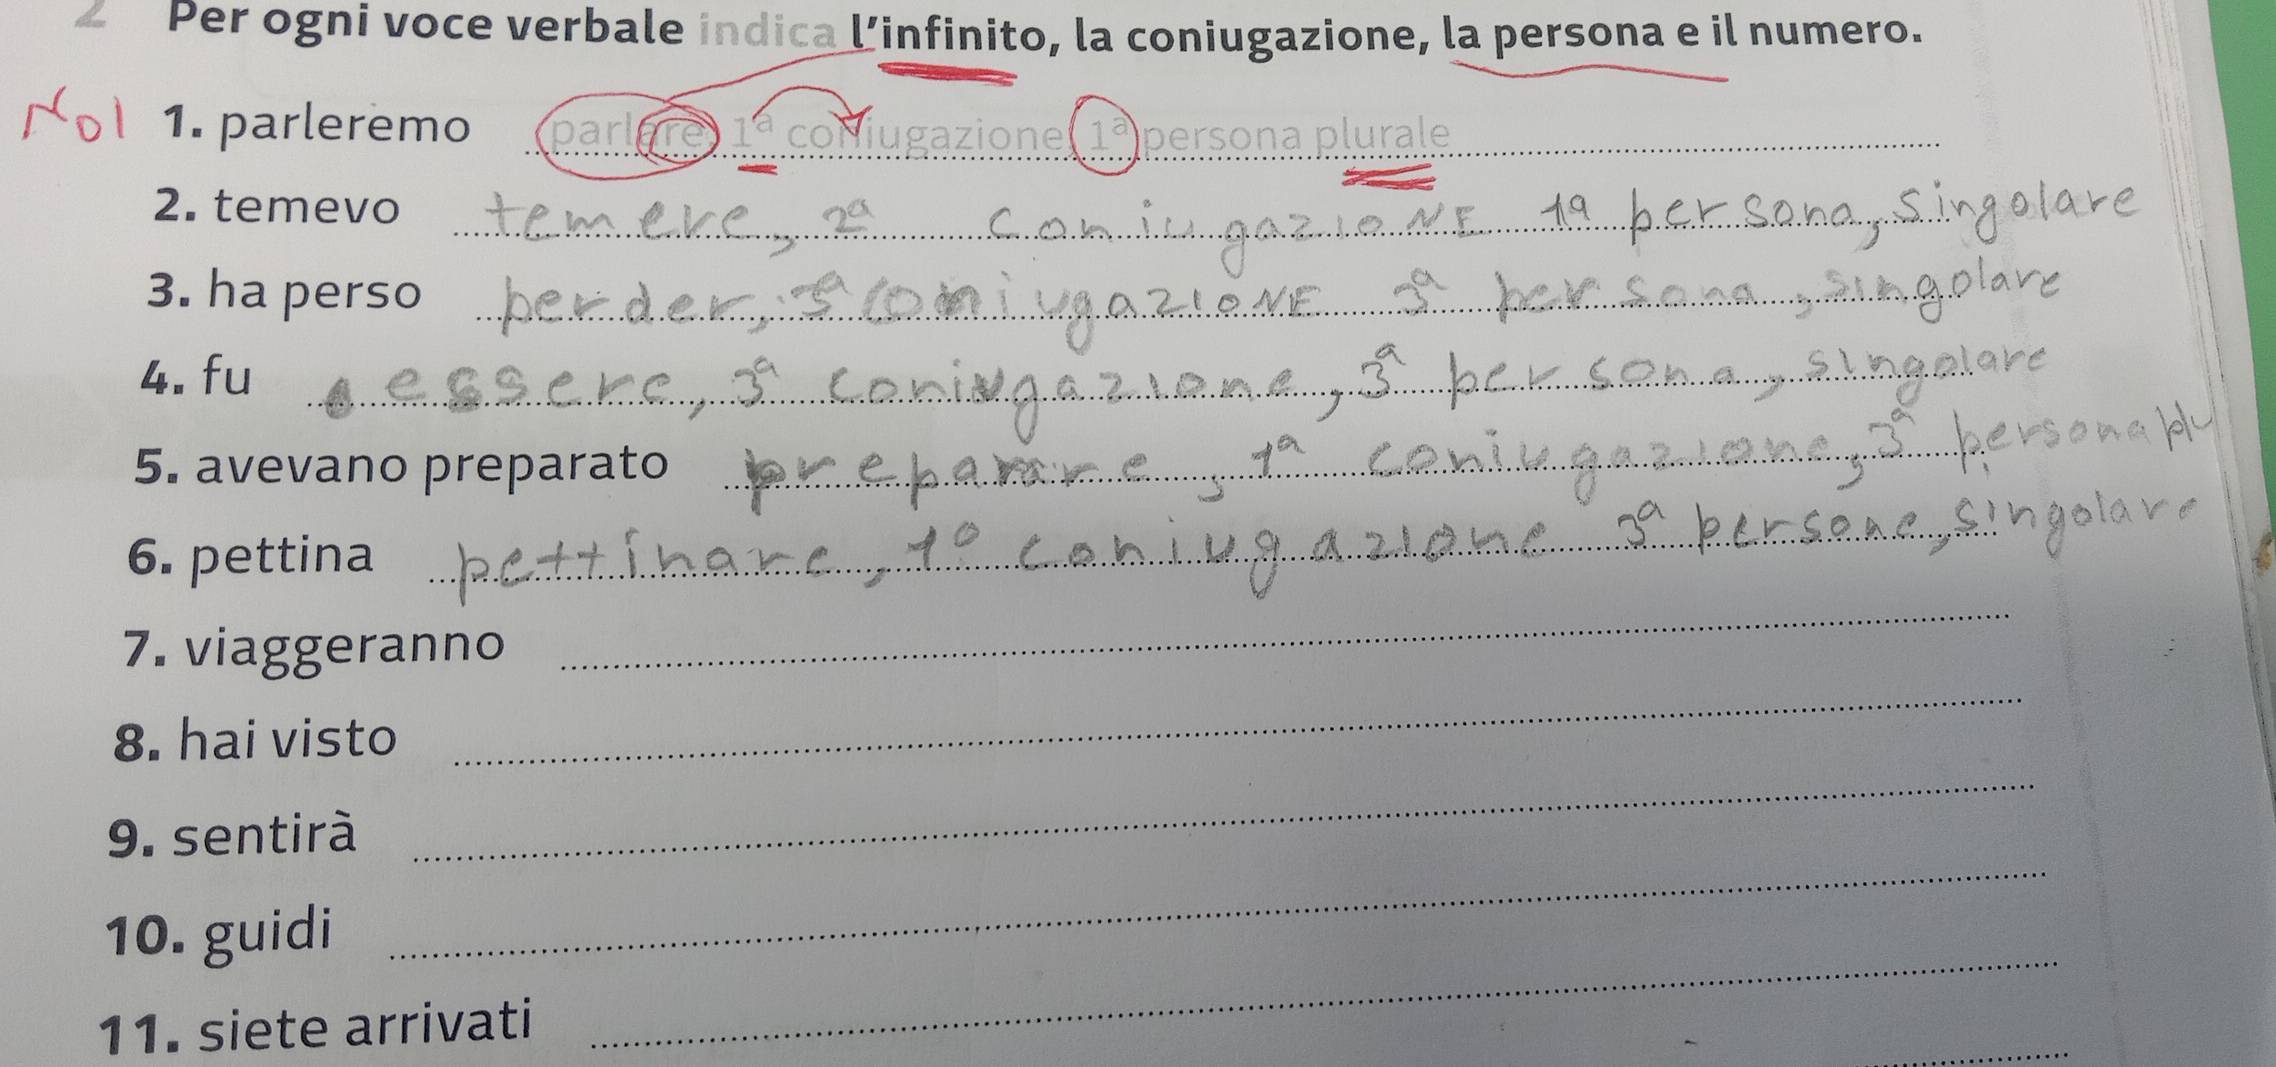 2 Per ogni voce verbale indica l'infinito, la coniugazione, la persona e il numero.
NOI 1. parleremo parlare, 1ª coniugazione, 1ª persona plurale
2. temevo temere, 2ª coniugazioNE 1ª persona, singolare
3. ha perso perder, 3ª coniugazioNE 3ª persona, singolare
4. fu essere, 3ª coniugazione, 3ª persona, singolare
5. avevano preparato preparare, 1ª coniugazione, 3ª persona plu
6. pettina pettinare, 1º coniugazione 3ª persone, singolare
7. viaggeranno
8. hai visto
9. sentirà
10. guidi
11. siete arrivati